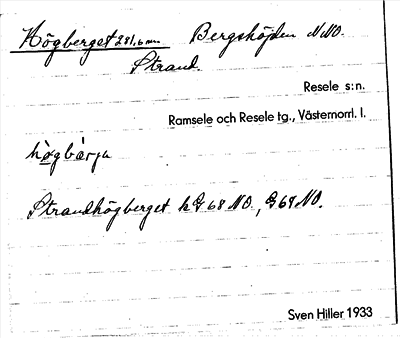 Högberget 281,6 m. Bergshöjden N.NO.
Strand.
Resele s:n.
Ramsele och Resele tg., Västernorrl. l.
högbärju
Strandhögberget kG 68 NO., G 68 NO.
Sven Hiller 1933